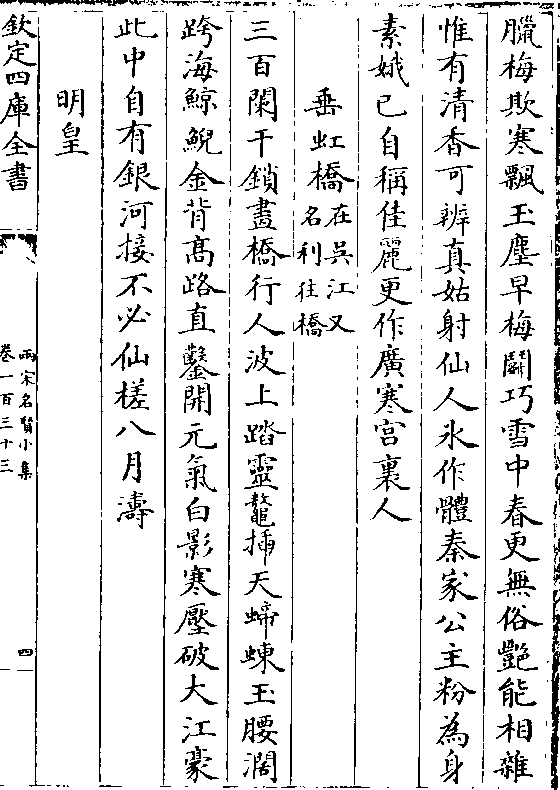 臘梅欺寒飄玉塵早梅鬭巧雪中春更無俗艷能相雜
惟有清香可辨真姑射仙人氷作體秦家公主粉為身
素娥已自稱佳麗更作廣寒宫裏人
垂虹橋在吳江又名利往橋
三百闌干鎖畫橋行人波上踏靈鼇揷天螮蝀玉腰濶
跨海鯨鯢金背髙路直鑿開元氣白影寒壓破大江豪
此中自有銀河接不必仙槎八月濤
明皇
欽定四庫全書
兩宋名賢小集
卷一百三十三
四